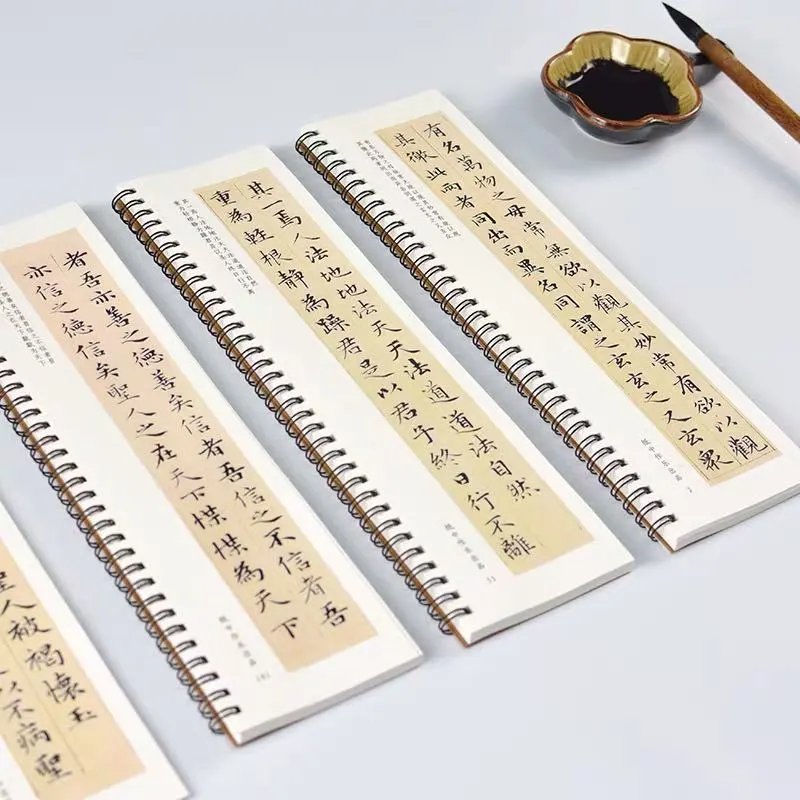 有名萬物之母常無欲以觀其妙常有欲以觀
其徼此兩者同出而異名同謂之玄玄之又玄眾
其一焉人法地地法天天法道道法自然
重為輕根靜為躁君是以君子終日行不離
者吾亦善之德善矣信者吾信之不信者吾
亦信之德信矣聖人之在天下惵惵為天下
聖人被褐懷玉
以不病聖